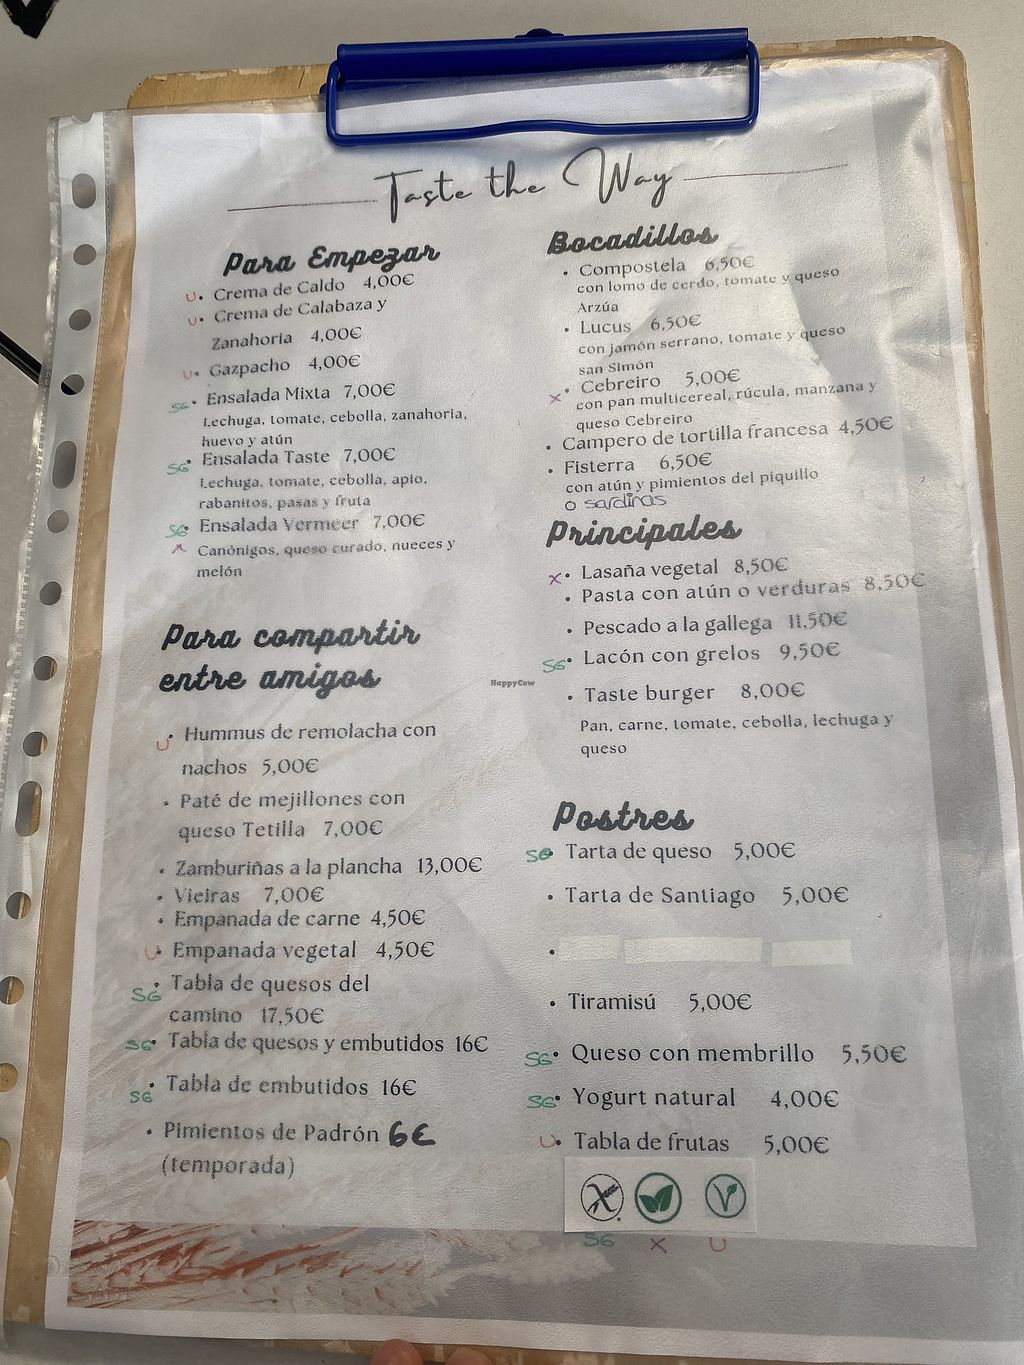 Taste the Way
Para Empezar
U • Crema de Caldo 4,00€
U • Crema de Calabaza y
Zanahoria 4,00€
U • Gazpacho 4,00€
SG • Ensalada Mixta 7,00€
Lechuga, tomate, cebolla, zanahoria,
huevo y atún
SG • Ensalada Taste 7,00€
Lechuga, tomate, cebolla, apio,
rabanitos, pasas y fruta
SG • Ensalada Vermeer 7,00€
x Canónigos, queso curado, nueces y
melón
Para compartir
entre amigos
U • Hummus de remolacha con
nachos 5,00€
• Paté de mejillones con
queso Tetilla 7,00€
• Zamburiñas a la plancha 13,00€
• Vieiras 7,00€
• Empanada de carne 4,50€
U • Empanada vegetal 4,50€
SG • Tabla de quesos del
camino 17,50€
SG • Tabla de quesos y embutidos 16€
SG • Tabla de embutidos 16€
• Pimientos de Padrón 6€
(temporada)
Bocadillos
• Compostela 6,50€
con lomo de cerdo, tomate y queso
Arzúa
• Lucus 6,50€
con jamón serrano, tomate y queso
san Simón
x • Cebreiro 5,00€
con pan multicereal, rúcula, manzana y
queso Cebreiro
• Campero de tortilla francesa 4,50€
• Fisterra 6,50€
con atún y pimientos del piquillo
o sardinas
Principales
x • Lasaña vegetal 8,50€
• Pasta con atún o verduras 8,50€
• Pescado a la gallega 11,50€
SG • Lacón con grelos 9,50€
• Taste burger 8,00€
Pan, carne, tomate, cebolla, lechuga y
queso
Postres
SG • Tarta de queso 5,00€
• Tarta de Santiago 5,00€
•
• Tiramisú 5,00€
SG • Queso con membrillo 5,50€
SG • Yogurt natural 4,00€
U • Tabla de frutas 5,00€
SG x U
HappyCow